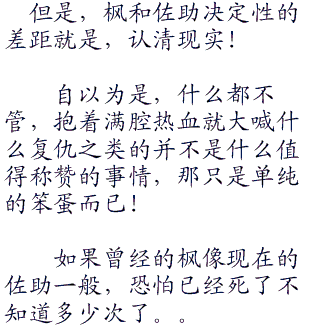 但是，枫和佐助决定性的
差距就是，认清现实！
自以为是，什么都不
管，抱着满腔热血就大喊什
么复仇之类的并不是什么值
得称赞的事情，那只是单纯
的笨蛋而已！
如果曾经的枫像现在的
佐助一般，恐怕已经死了不
知道多少次了。。